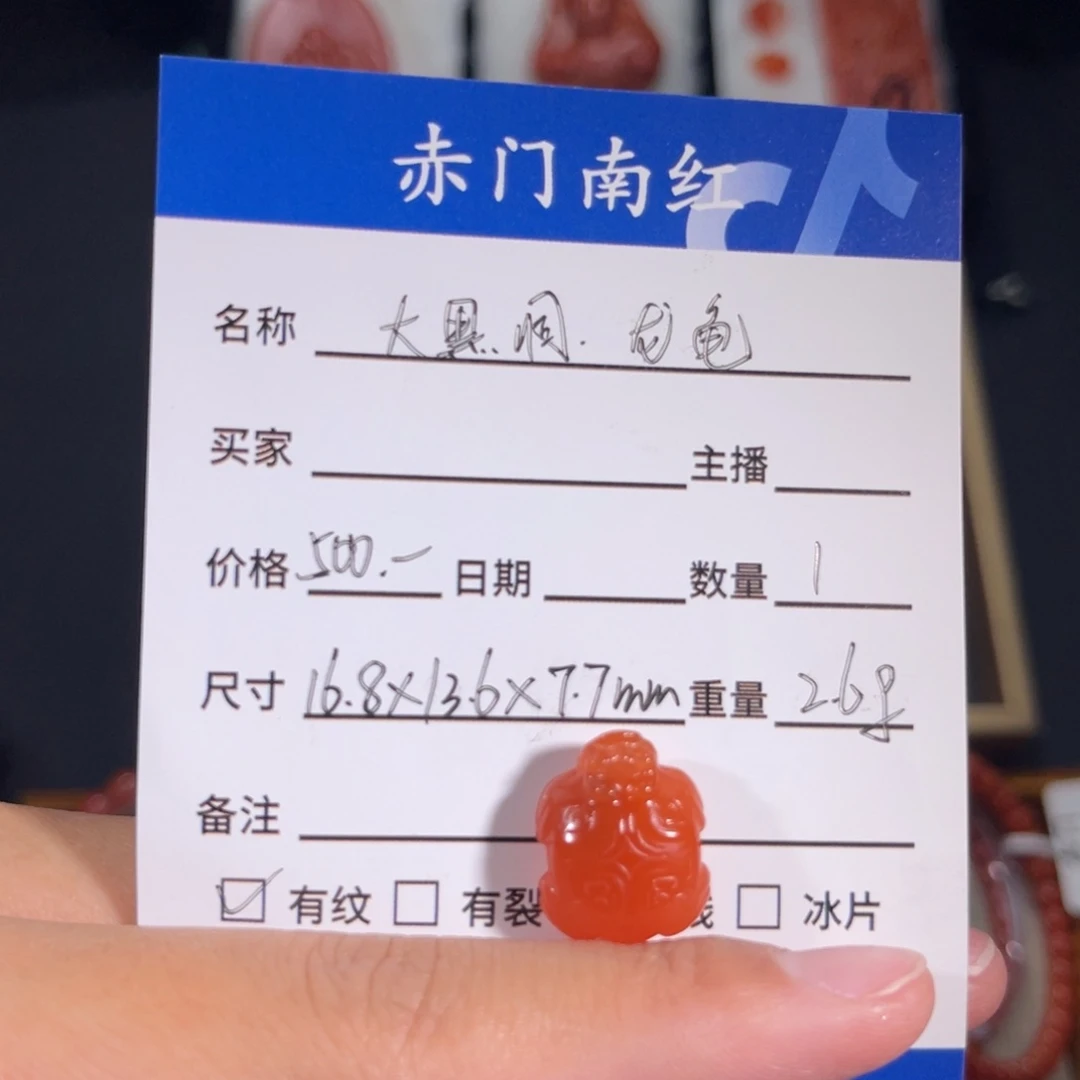 赤门南红
名称 大黑洞. 龙龟
买家 主播
价格 500.- 日期 数量 1
尺寸 16.8×13.6×7.7mm 重量 2.6g
备注
有纹 有裂 冰片